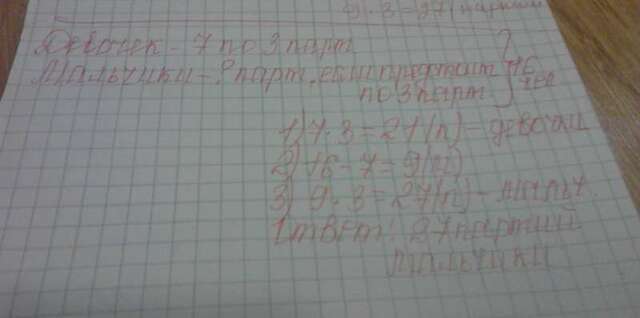 3) 9·3=27(парти
Девочек - 7 по 3 парт
Мальчики - ? парт, если предст. } 16 чел
по 3 парт
1) 7·3=21(п) - девочки
2) 16-7=9(м)
3) 9·3=27(п) - мальч.
Ответ: 27 партий
мальчики